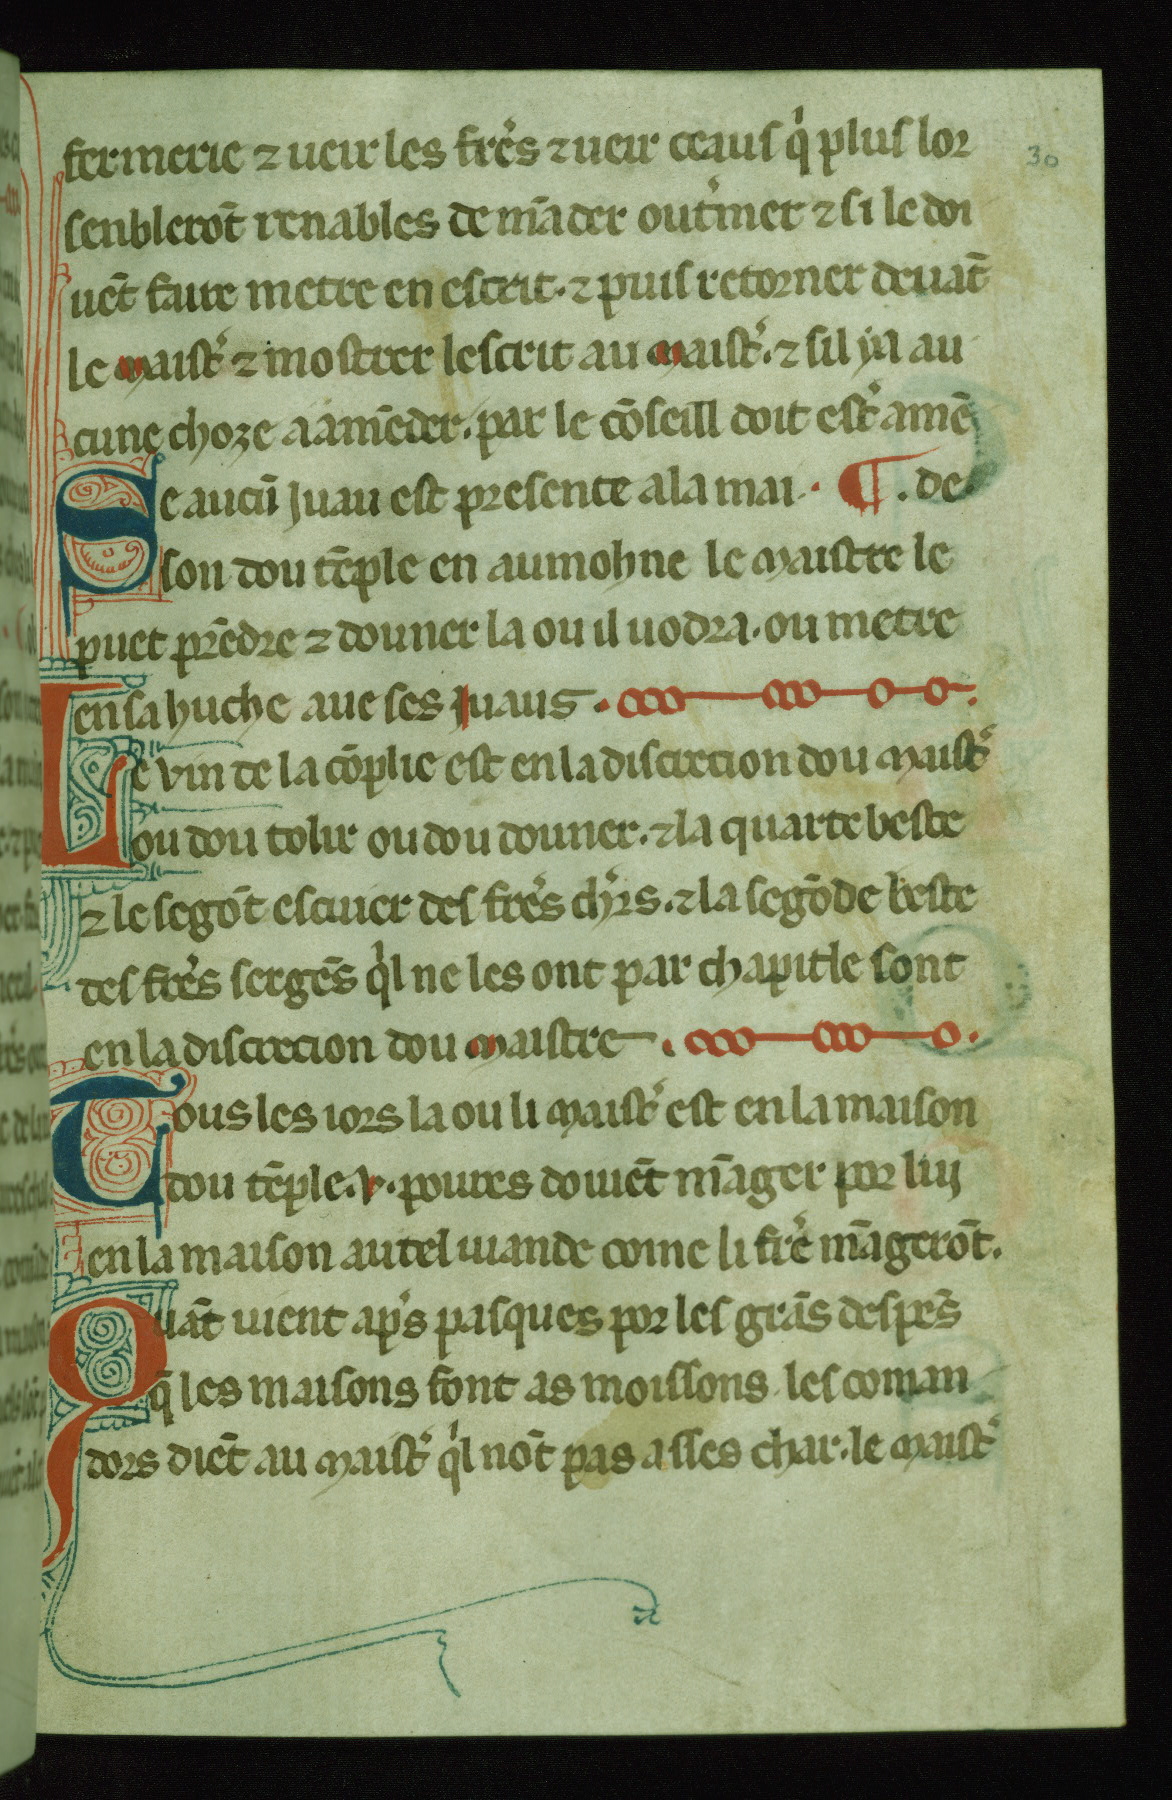 fermerie ⁊ ueir les frẽs ⁊ ueir ceaus q̇ plus lor
30
senblerõt renables de mãder outr̃mer ⁊ si le doi
uẽt faire metre en escrit · ⁊ puis retorner deuãt
le maistr̃ ⁊ mostrer lescrit au maistr̃ · ⁊ sil ya au
cune choze a amẽder · par le cõseill doit estr̃ amẽ
Se aucũ juau est presente a la mai · ¶ . de
son dou tẽple en aumohne le maistre le
puet prẽdre ⁊ douner la ou il uodra · ou metre
en sa huche aue ses juaus ·
Le vin de la cõplie est en la discrecion dou maistr̃
ou dou tolir ou dou douner · ⁊ la quarte beste
⁊ le segõt escuier des frẽs chr̃s · ⁊ la segõde beste
des frẽs sergẽs q̇l ne les ont par chapitle sont
en la discrecion dou maistre ·
Tous les iors la ou li maistr̃ est en la maison
dou tẽple · v · poures doiuẽt mãger por luj
en la maison autel uiande come li frẽ mãgerõt .
Quãt uient apr̃s pasques por les grãs despẽs
q̃ les maisons font as moissons les coman
dors diẽt au maistr̃ q̇l nõt pas asses char · le maistr̃